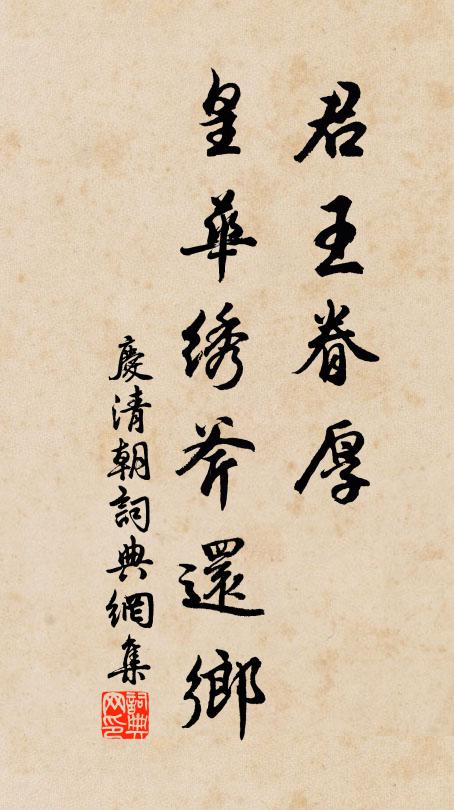 君王眷厚
皇華绣斧還鄉
慶清朝詞典網集
詞典网印